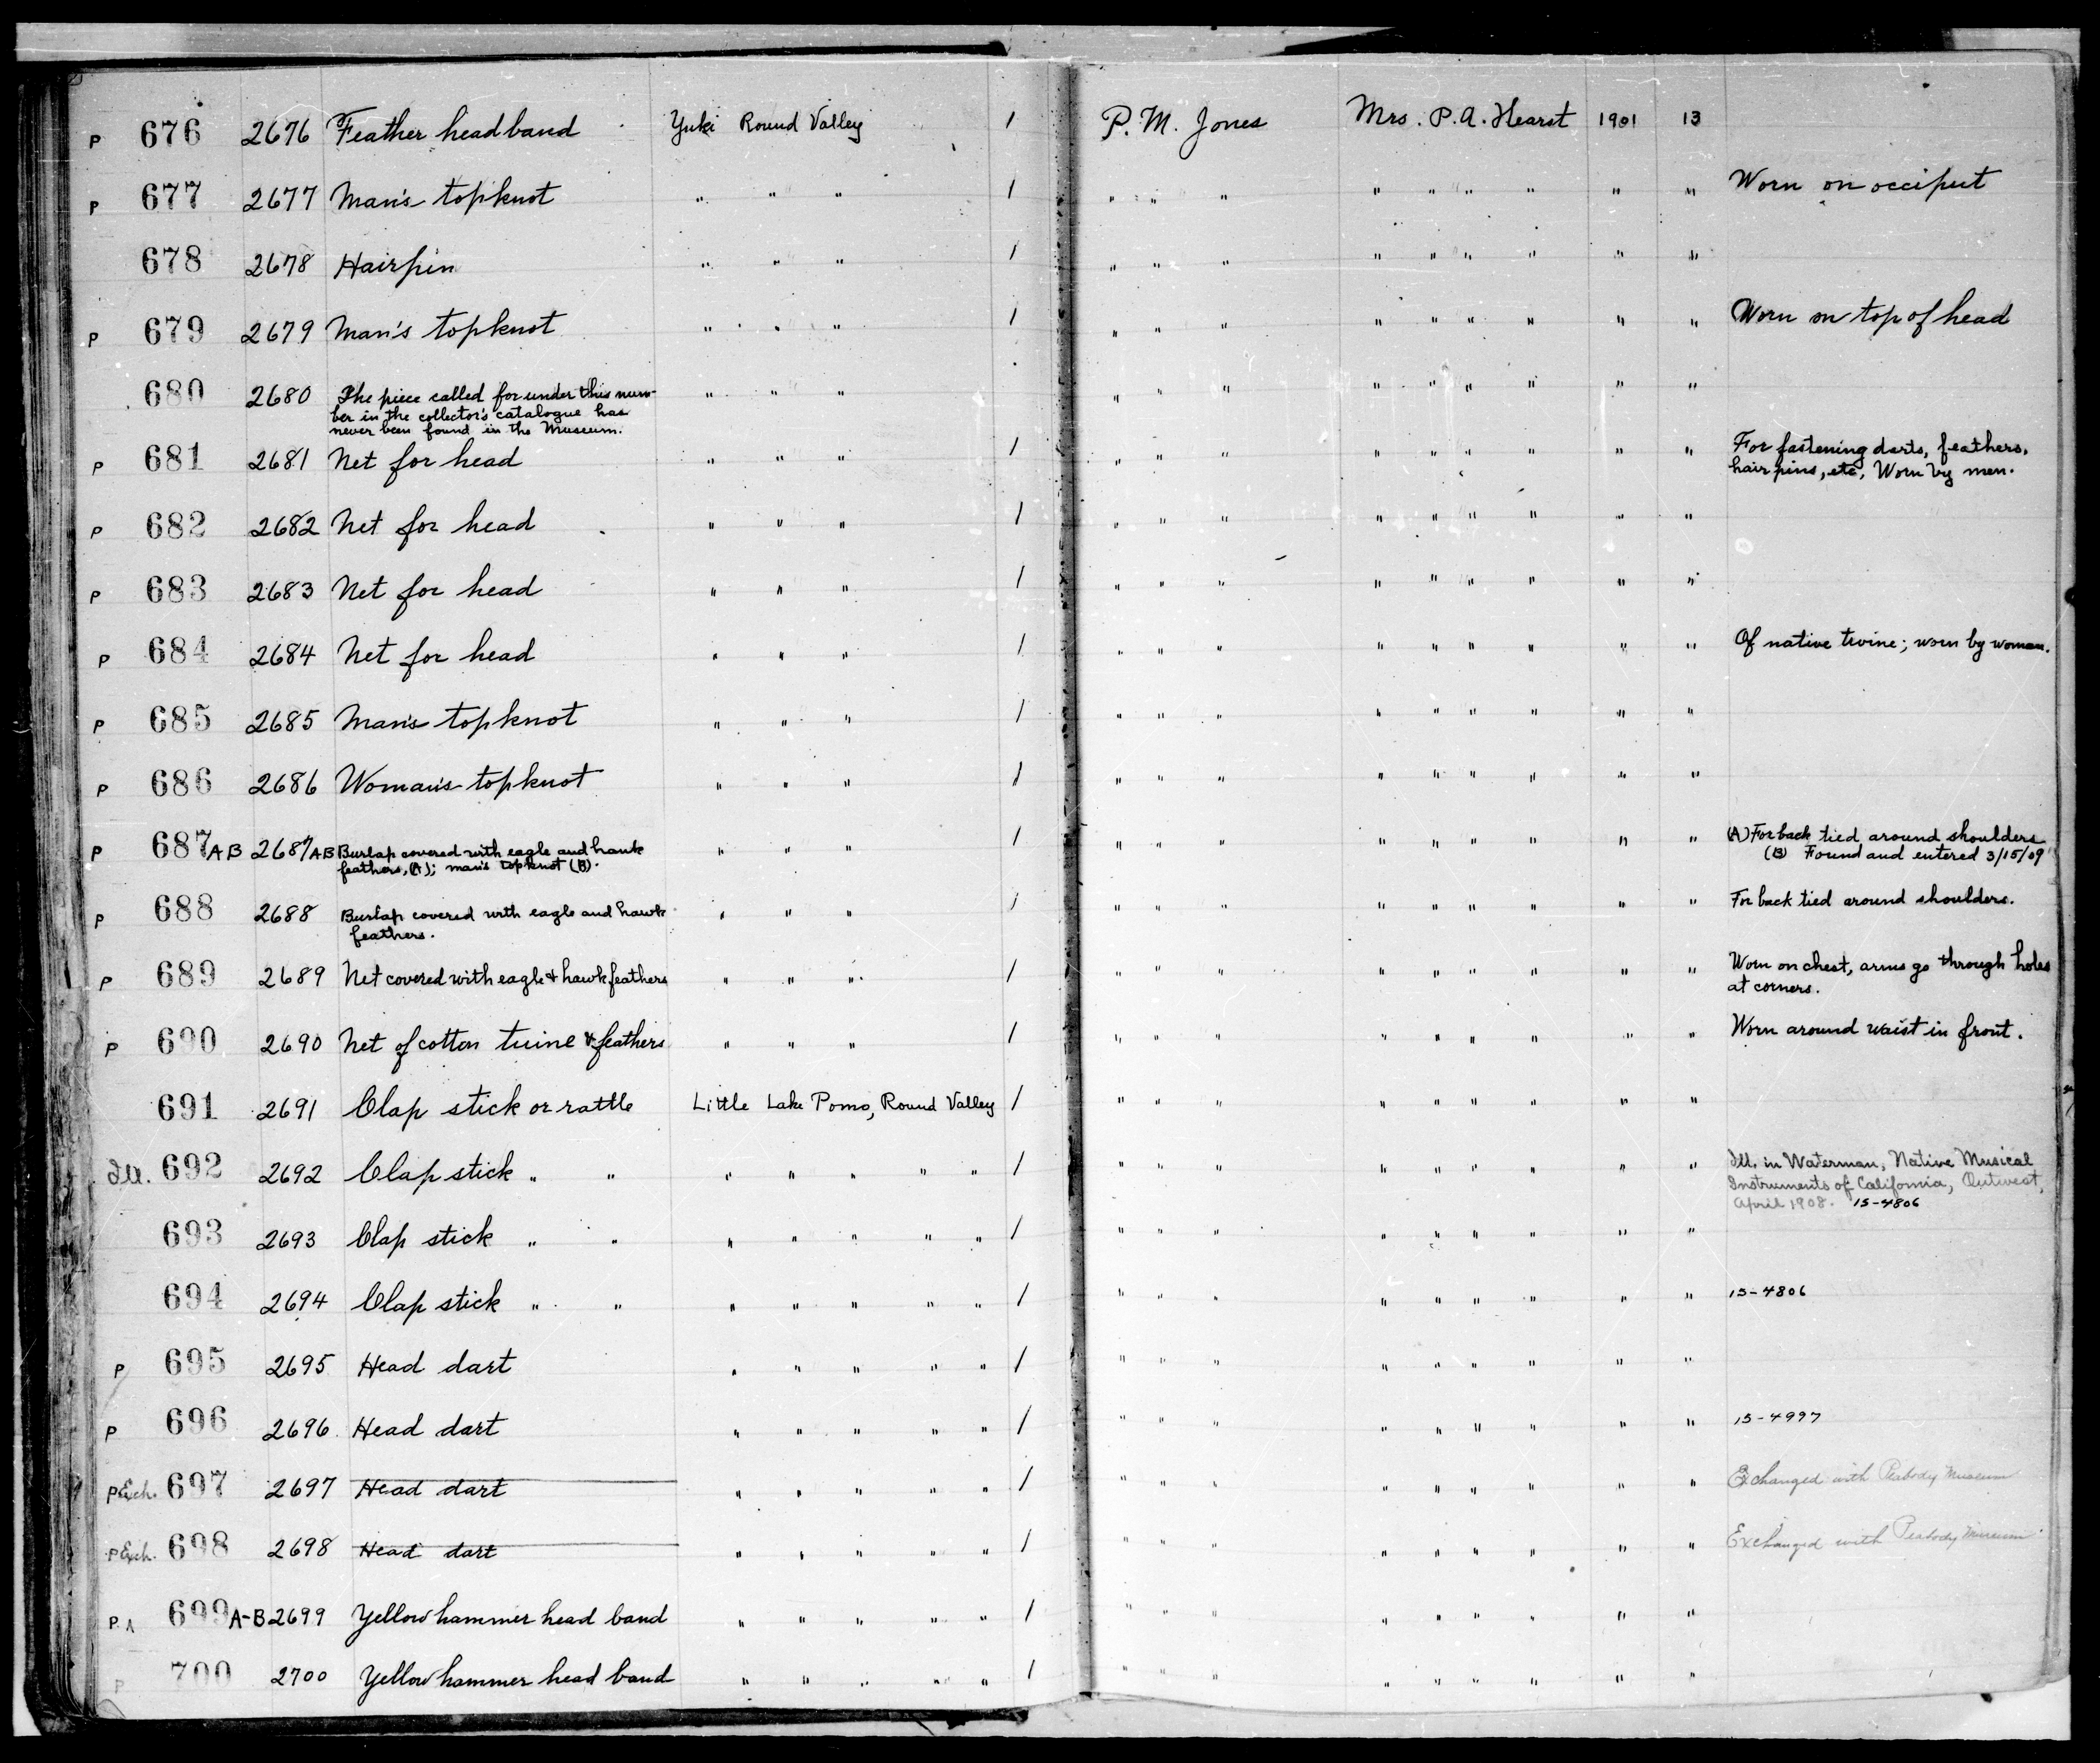 P 676 2676 Feather headband Yuki Round Valley 1 P. M. Jones Mrs. P. A. Hearst 1901 13
P 677 2677 Man's topknot " " " 1 " " " " " " " " " Worn on occiput
678 2678 Hairpin " " " 1 " " " " " " " " "
P 679 2679 Man's topknot " " " 1 " " " " " " " " " Worn on top of head
680 2680 The piece called for under this num-
ber in the collector's catalogue has
never been found in the Museum. " " " " " " " " " " " "
P 681 2681 Net for head " " " 1 " " " " " " " " " For fastening darts, feathers,
hair pins, etc, Worn by men.
P 682 2682 Net for head " " " 1 " " " " " " " " "
P 683 2683 Net for head " " " 1 " " " " " " " " "
P 684 2684 Net for head " " " 1 " " " " " " " " " Of native twine; worn by woman.
P 685 2685 Man's topknot " " " 1 " " " " " " " " "
P 686 2686 Woman's topknot " " " 1 " " " " " " " " "
P 687 AB 2687 AB Burlap covered with eagle and hawk
feathers, (A); man's topknot (B). " " " 1 " " " " " " " " " (A) For back tied around shoulders
(B) Found and entered 3/15/09
P 688 2688 Burlap covered with eagle and hawk
feathers. " " " 1 " " " " " " " " " For back tied around shoulders.
P 689 2689 Net covered with eagle & hawk feathers " " " 1 " " " " " " " " " Worn on chest, arms go through holes
at corners.
P 690 2690 Net of cotton twine & feathers " " " 1 " " " " " " " " " Worn around waist in front.
691 2691 Clap stick or rattle Little Lake Pomo, Round Valley 1 " " " " " " " " "
Ill. 692 2692 Clap stick " " " " " " " 1 " " " " " " " " " Ill. in Waterman, Native Musical
Instruments of California, Outwest,
April 1908. 15-4806
693 2693 Clap stick " " " " " " " 1 " " " " " " " " "
694 2694 Clap stick " " " " " " " 1 " " " " " " " " " 15-4806
P 695 2695 Head dart " " " " " 1 " " " " " " " " "
P 696 2696 Head dart " " " " " 1 " " " " " " " " " 15-4997
P Exch. 697 2697 Head dart " " " " " 1 " " " " " " " " " Exchanged with Peabody Museum
P Exch. 698 2698 Head dart " " " " " 1 " " " " " " " " " Exchanged with Peabody Museum
P A 699 A-B 2699 Yellow hammer head band " " " " " 1 " " " " " " " " "
P 700 2700 Yellow hammer head band " " " " " 1 " " " " " " " " "